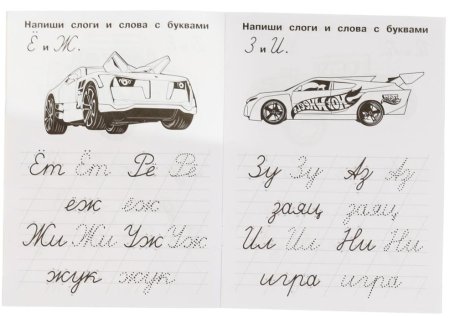 Напиши слоги и слова с буквами
Ё и Ж.
Ёт Ёт Рё Рё
ёж ёж
Жи Жи Уж Уж
жук жук
Напиши слоги и слова с буквами
З и И.
Зу Зу Аз Аз
заяц заяц
Ил Ил Ни Ни
игра игра